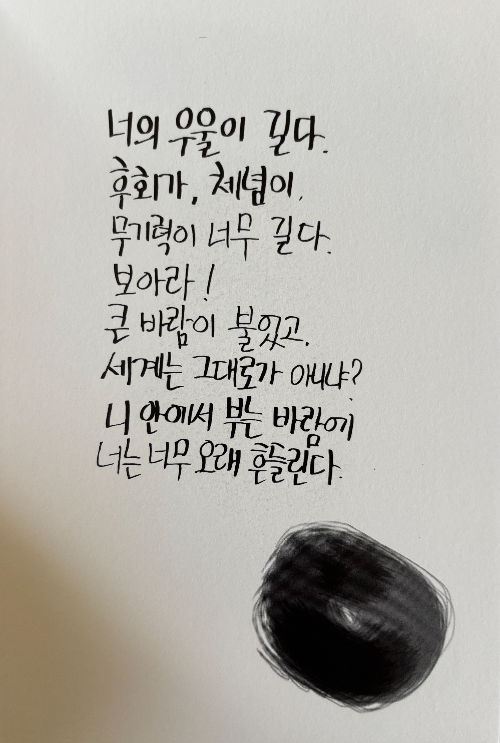 너의 우울이 길다.
후회가, 체념이,
무기력이 너무 길다.
보아라!
큰 바람이 불었고,
세계는 그대로가 아니냐?
니 안에서 부는 바람에
너는 너무 오래 흔들린다.